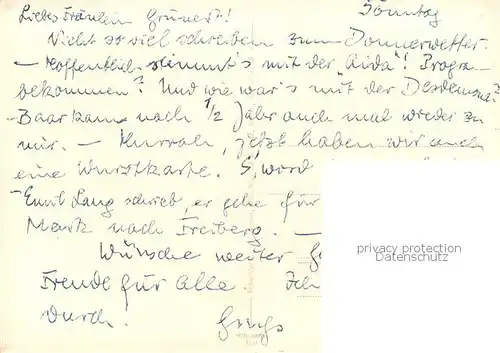 Sonntag
Liebes Fräulein Grunert!
Nicht so viel schreiben zum Donnerwetter.
– Hoffentlich stimmt's mit der "Aida"! Progra-
bekommen? Und wie war's mit der Desdemona?
– Baarkam nach 1/2 Jahr auch mal wieder zu
mir. – Hurrah, jetzt haben wir auch
eine Wurstkarte. S' word
– Emil Lang schrieb, er gehe für
Mark nach Freiberg. –
Wünsche weiter
Freude für alle. Ich
durch!
privacy protection
Datenschutz